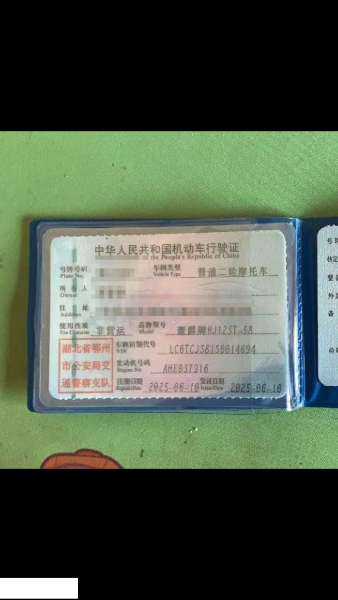 中华人民共和国机动车行驶证
of the People's Republic of China
号牌号码
Plate No.
车辆类型
Vehicle Type
普通二轮摩托车
所有人
Owner
住址
Address
使用性质
Use Character
非营运
品牌型号
Model
豪爵牌HJ125T-5A
湖北省鄂州
市公安局交
通警察支队
车辆识别代号
VIN
发动机号码
Engine No.
注册日期
Register Date
2025-06-18
发证日期
Issue Date
2025-06-18